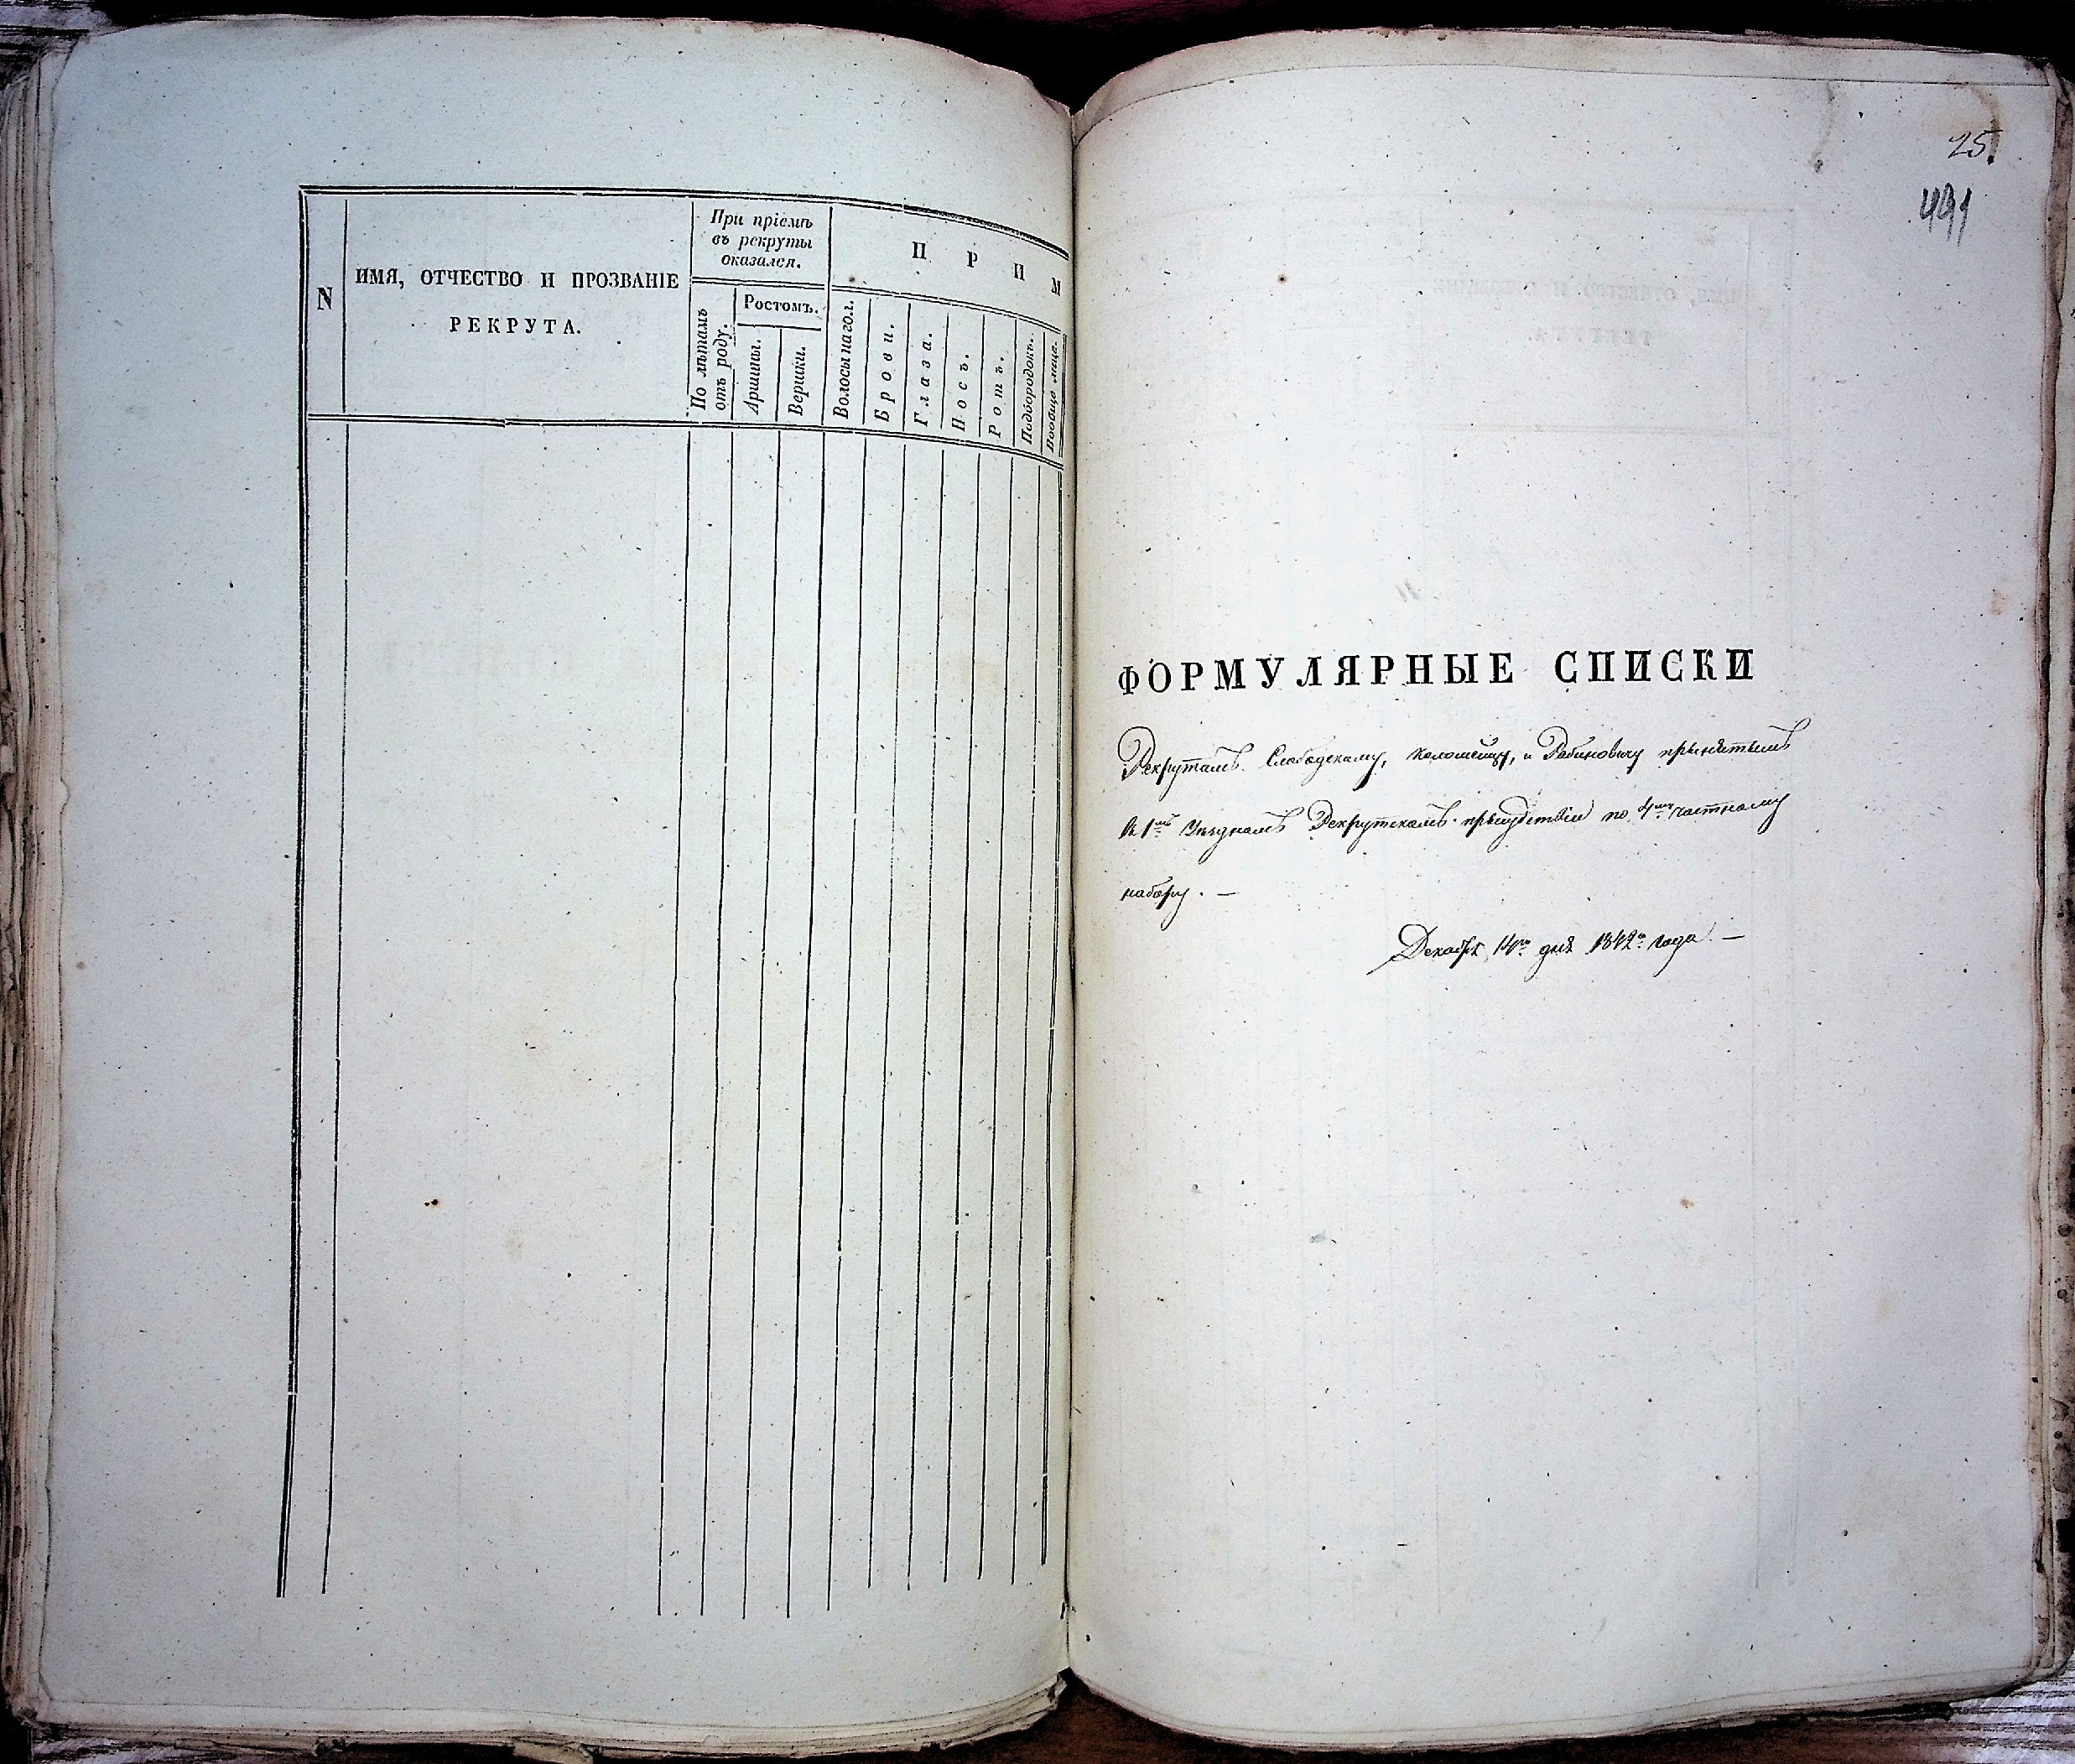 N
ИМЯ, ОТЧЕСТВО И ПРОЗВАНІЕ
РЕКРУТА.
При пріемѣ
въ рекруты
оказался.
По лѣтамъ
отъ роду.
Ростомъ.
Аршины.
Вершки.
П Р И М
Волосы на гол.
Брови.
Глаза.
Носъ.
Ротъ.
Подбородокъ.
Вообще лице.
25.
491
ФОРМУЛЯРНЫЕ СПИСКИ
Рекрутамъ Слободскому, Коломейцу, и Рабиновичу принятымъ
въ 1мъ Уѣздномъ Рекрутскомъ присудствіи по 4му частному
набору. —
Декабря 14го дня 1842го года. —